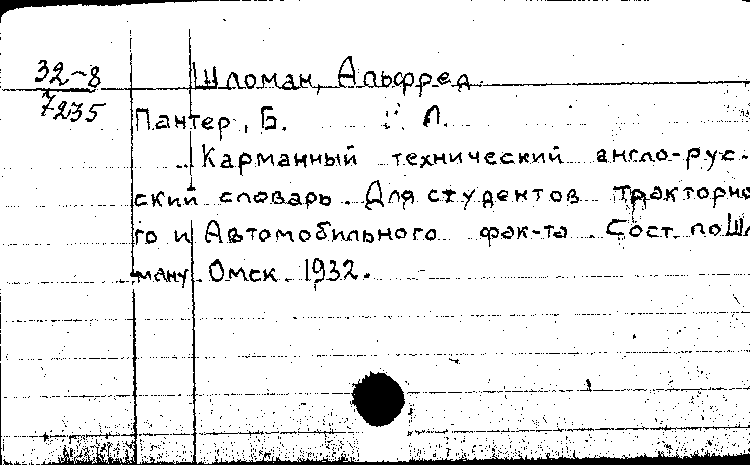 32-8
7235
Шломан, Альфред.
Пантер, Б. Л.
Карманный технический англо-рус-
ский словарь. Для студентов тракторно
го и Автомобильного фак-та. Сост. по Шл
ману. Омск. 1932.